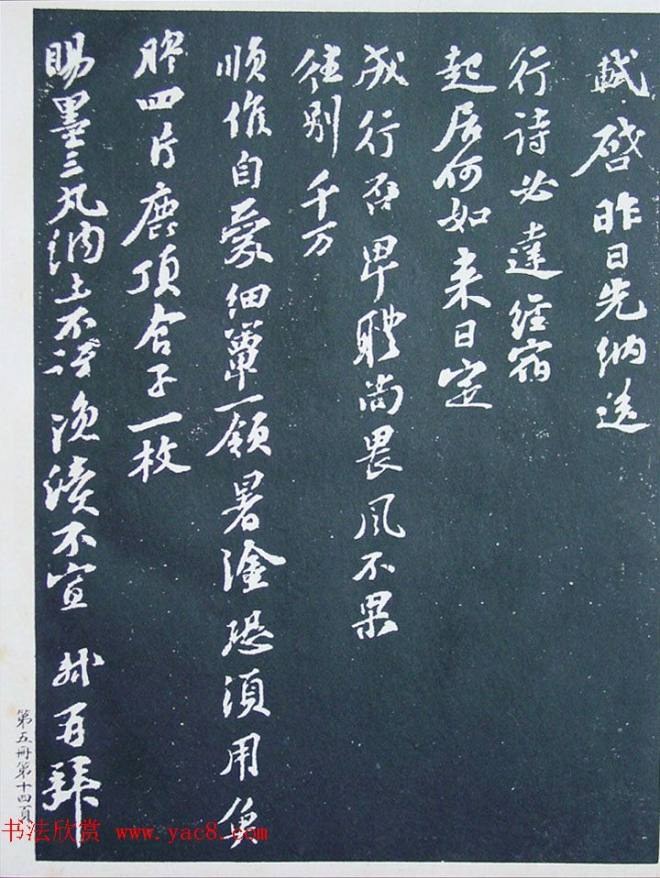 軾啓昨日先納送
行詩必達經宿
起居何如来日定
成行否卑體尚畏風不果
往别千万
順候自愛細簟一領暑塗恐須用魚
膠四片鹿頂合子一枚
賜墨三丸納上不訝浼瀆不宣 軾再拜
第五冊第十四頁
书法欣赏 www.yac8.com